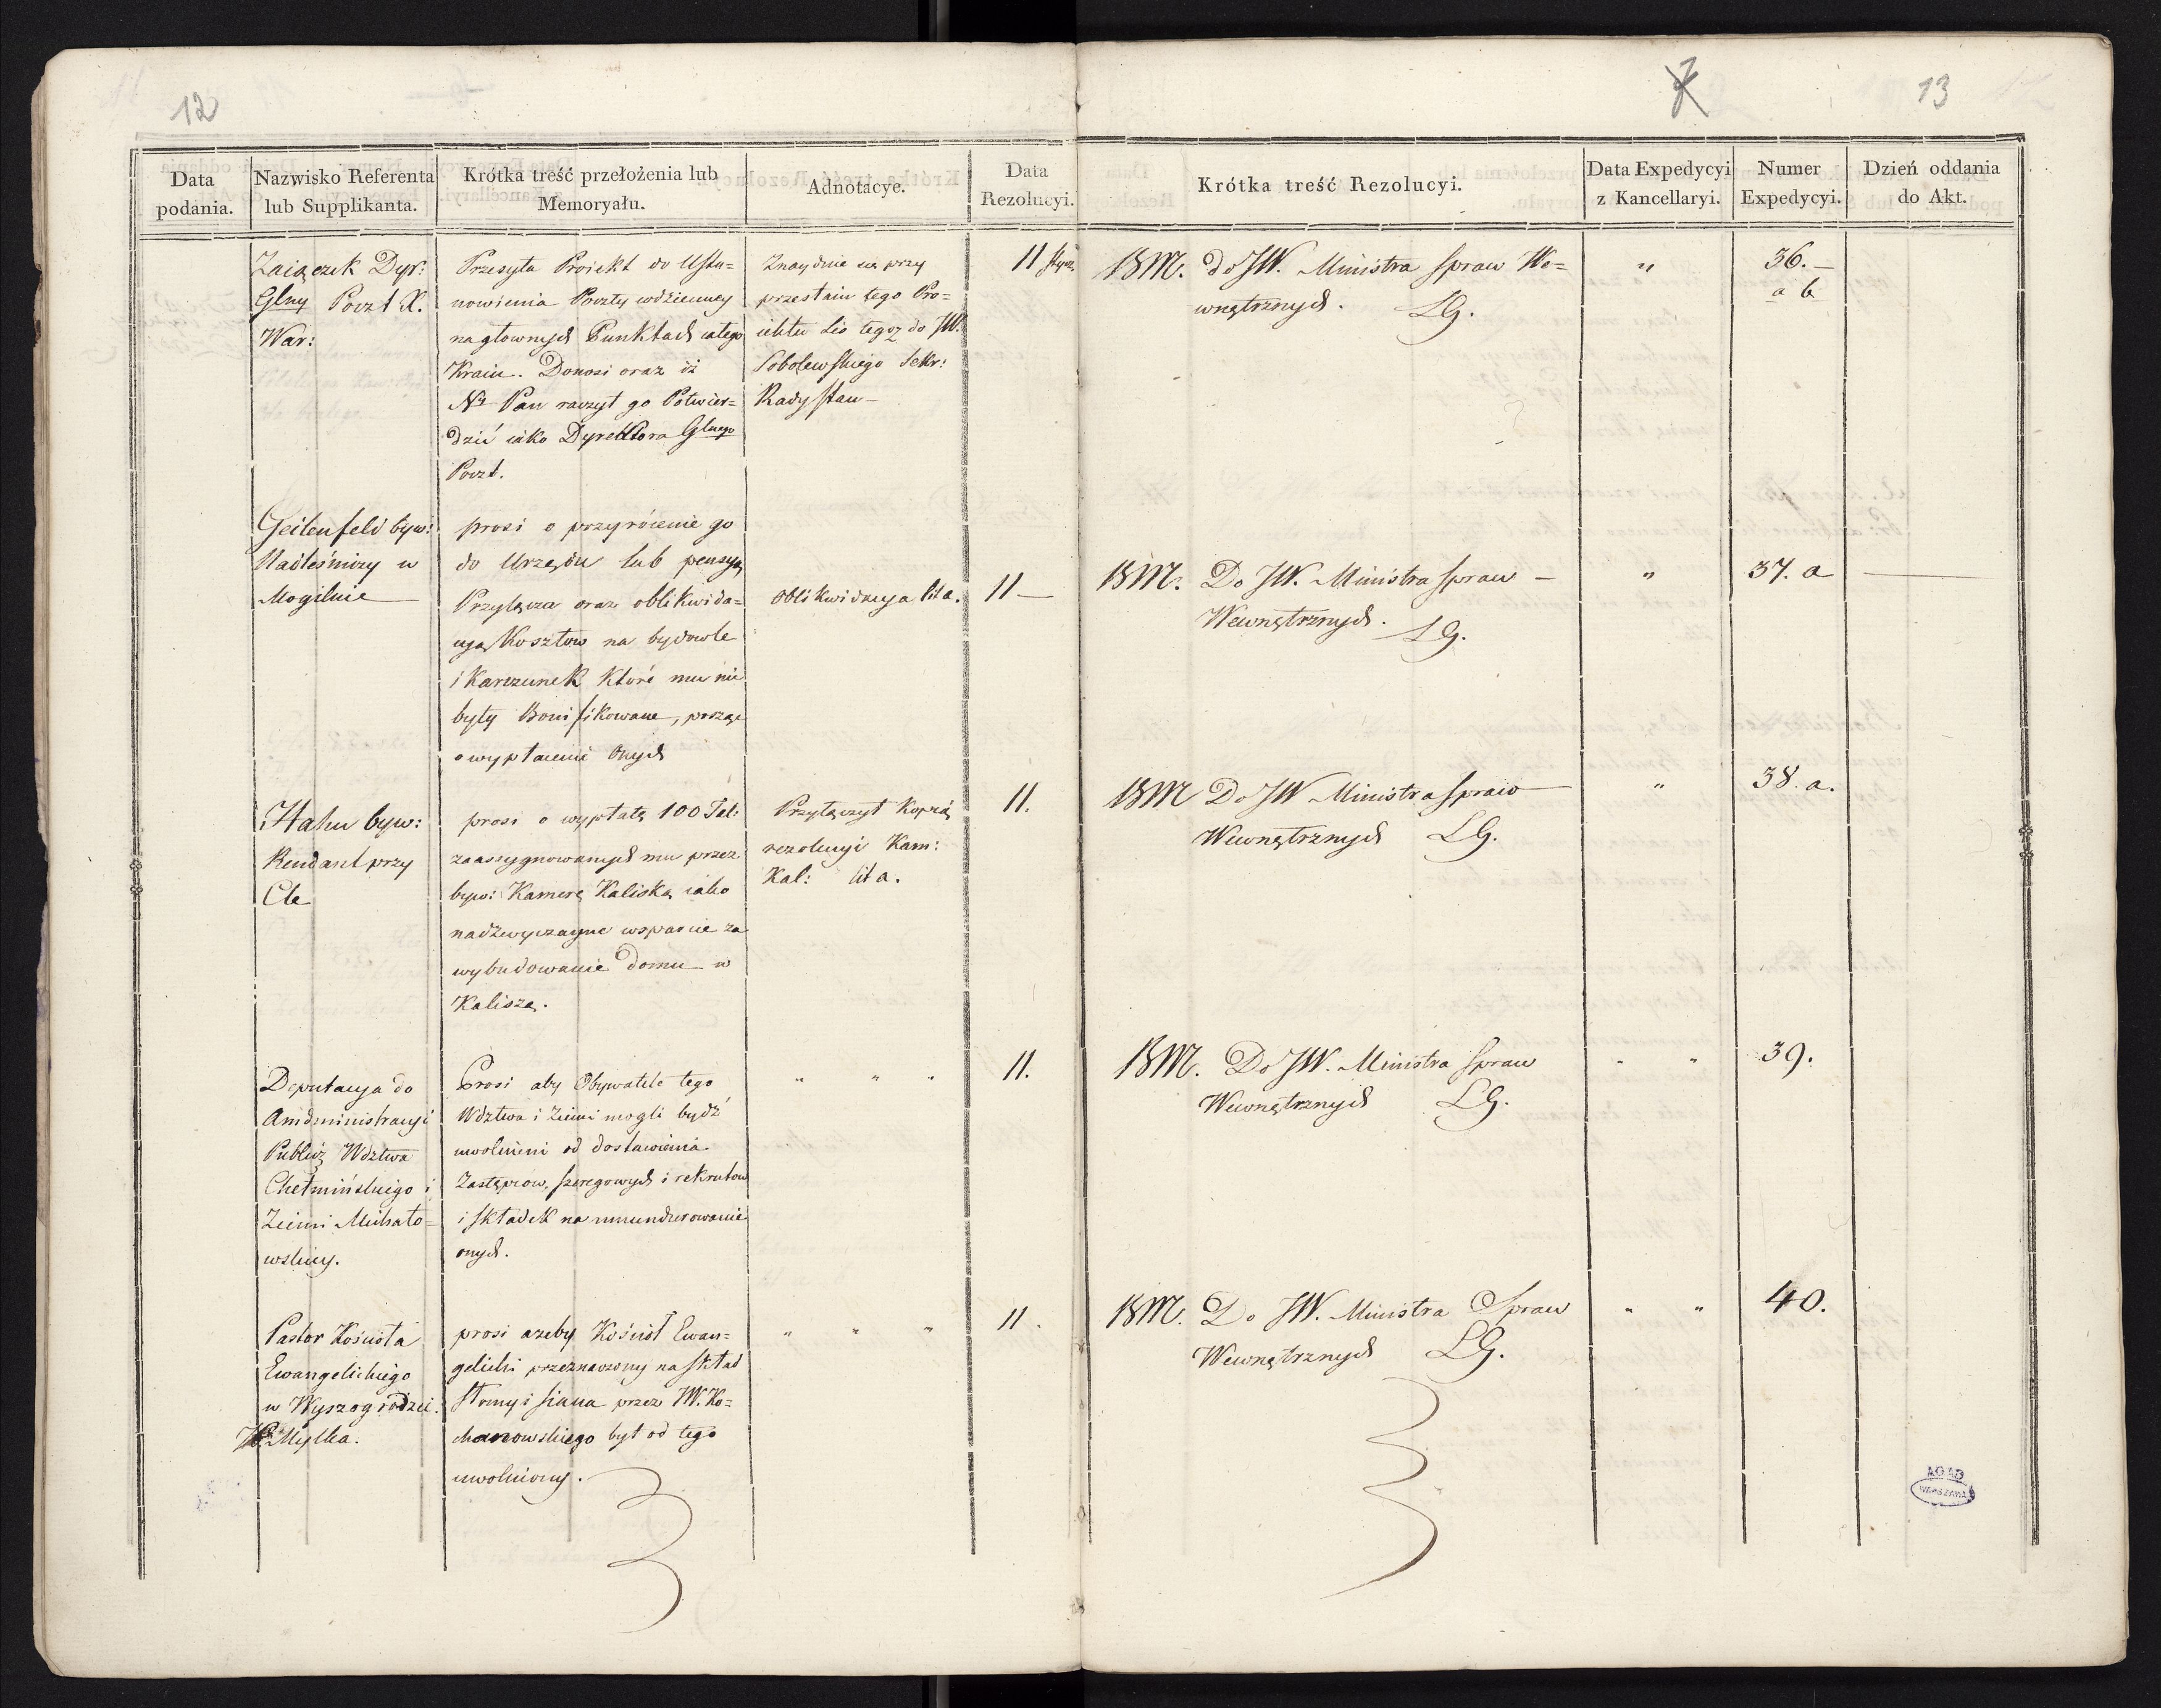 12
7
13
Data podania.
Nazwisko Referenta lub Supplikanta.
Krótka treść przełożenia lub Memoryału.
Adnotacye.
Data Rezolucyi.
Krótka treść Rezolucyi.
Data Expedycyi z Kancellaryi.
Numer Expedycyi.
Dzień oddania do Akt.
Zaiączek Dyr:
Glny Poczt X.
War:
Przesyła Proiekt do Usta=
nowienia Poczty codzienney
na głownych Punktach całego
Kraiu. Donosi oraz iż
Nȳ Pan raczył go Potwier=
dzić iako Dyrektora Glnego
Poczt.
Znayduie się przy
przesłaniu tego Pro=
iektu tegoż do JW.
Sobolewskiego Sekr:
Rady Stan—
11 Stycz.
BM. do JW. Ministra Spraw We=
wnętrznych. LG.
"
36.—
a b
Geitenfeld byw:
Nadleśniczy w
Mogilnie
prosi o przywrócenie go
do Urzędu lub pensyą
Przyłącza oraz oblikwida=
cyą Kosztow na bydowle
i Karczunek Które mu nie
były Bonifikowane, prosząc
o wypłacenie Onych
Oblikwidacya lit a.
11 —
BM. Do JW. Ministra Spraw —
Wewnętrznych. LG.
"
37. a
Hahn byw:
Rendant przy
Cle
prosi o wypłatę 100 Tal:
zaassygnowanych mu przez
byw: Kamerę Kaliską iako
nadzwyczayne wsparcie za
wybudowanie domu w
Kaliszą.
Przyłączył Kopią
rezolucyi Kam:
Kal: lit a.
11.
BM Do JW Ministra Spraw
Wewnętrznych LG.
"
38. a.
Deputacya do
Amdministracyi
Publicz Wdztwa
Chełmińskiego i
Ziemi Michało=
wskiey.
Prosi aby Obywatele tego
Wdztwa i Ziemi mogli bydź
uwolnieni od dostawienia
Zastępcow, szeregowych i rekrutow
i składek na umundurowanie
onych.
" " "
11.
BM. Do JW. Ministra Spraw
Wewnętrznych LG.
" "
39.
Pastor Kościoła
Ewangelickiego
w Wyszogrodzie.
Mylka.
prosi azeby Kościół Ewan=
gelicki przeznaczony na skład
słomy i siana przez W. Ko=
chanowskiego był od tego
uwolniony.
" " "
11.
BM. Do JW. Ministra Spraw
Wewnętrznych LG.
" "
40.
AGAD
WARSZAWA